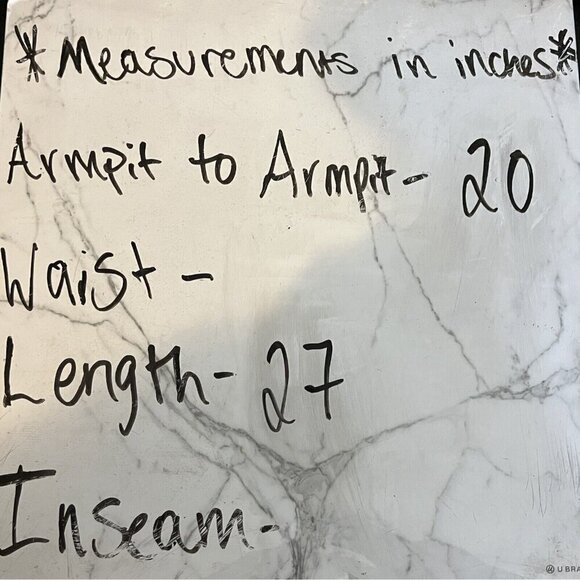 *Measurements in inches*
Armpit to Armpit- 20
Waist -
Length- 27
Inseam-
U BRA